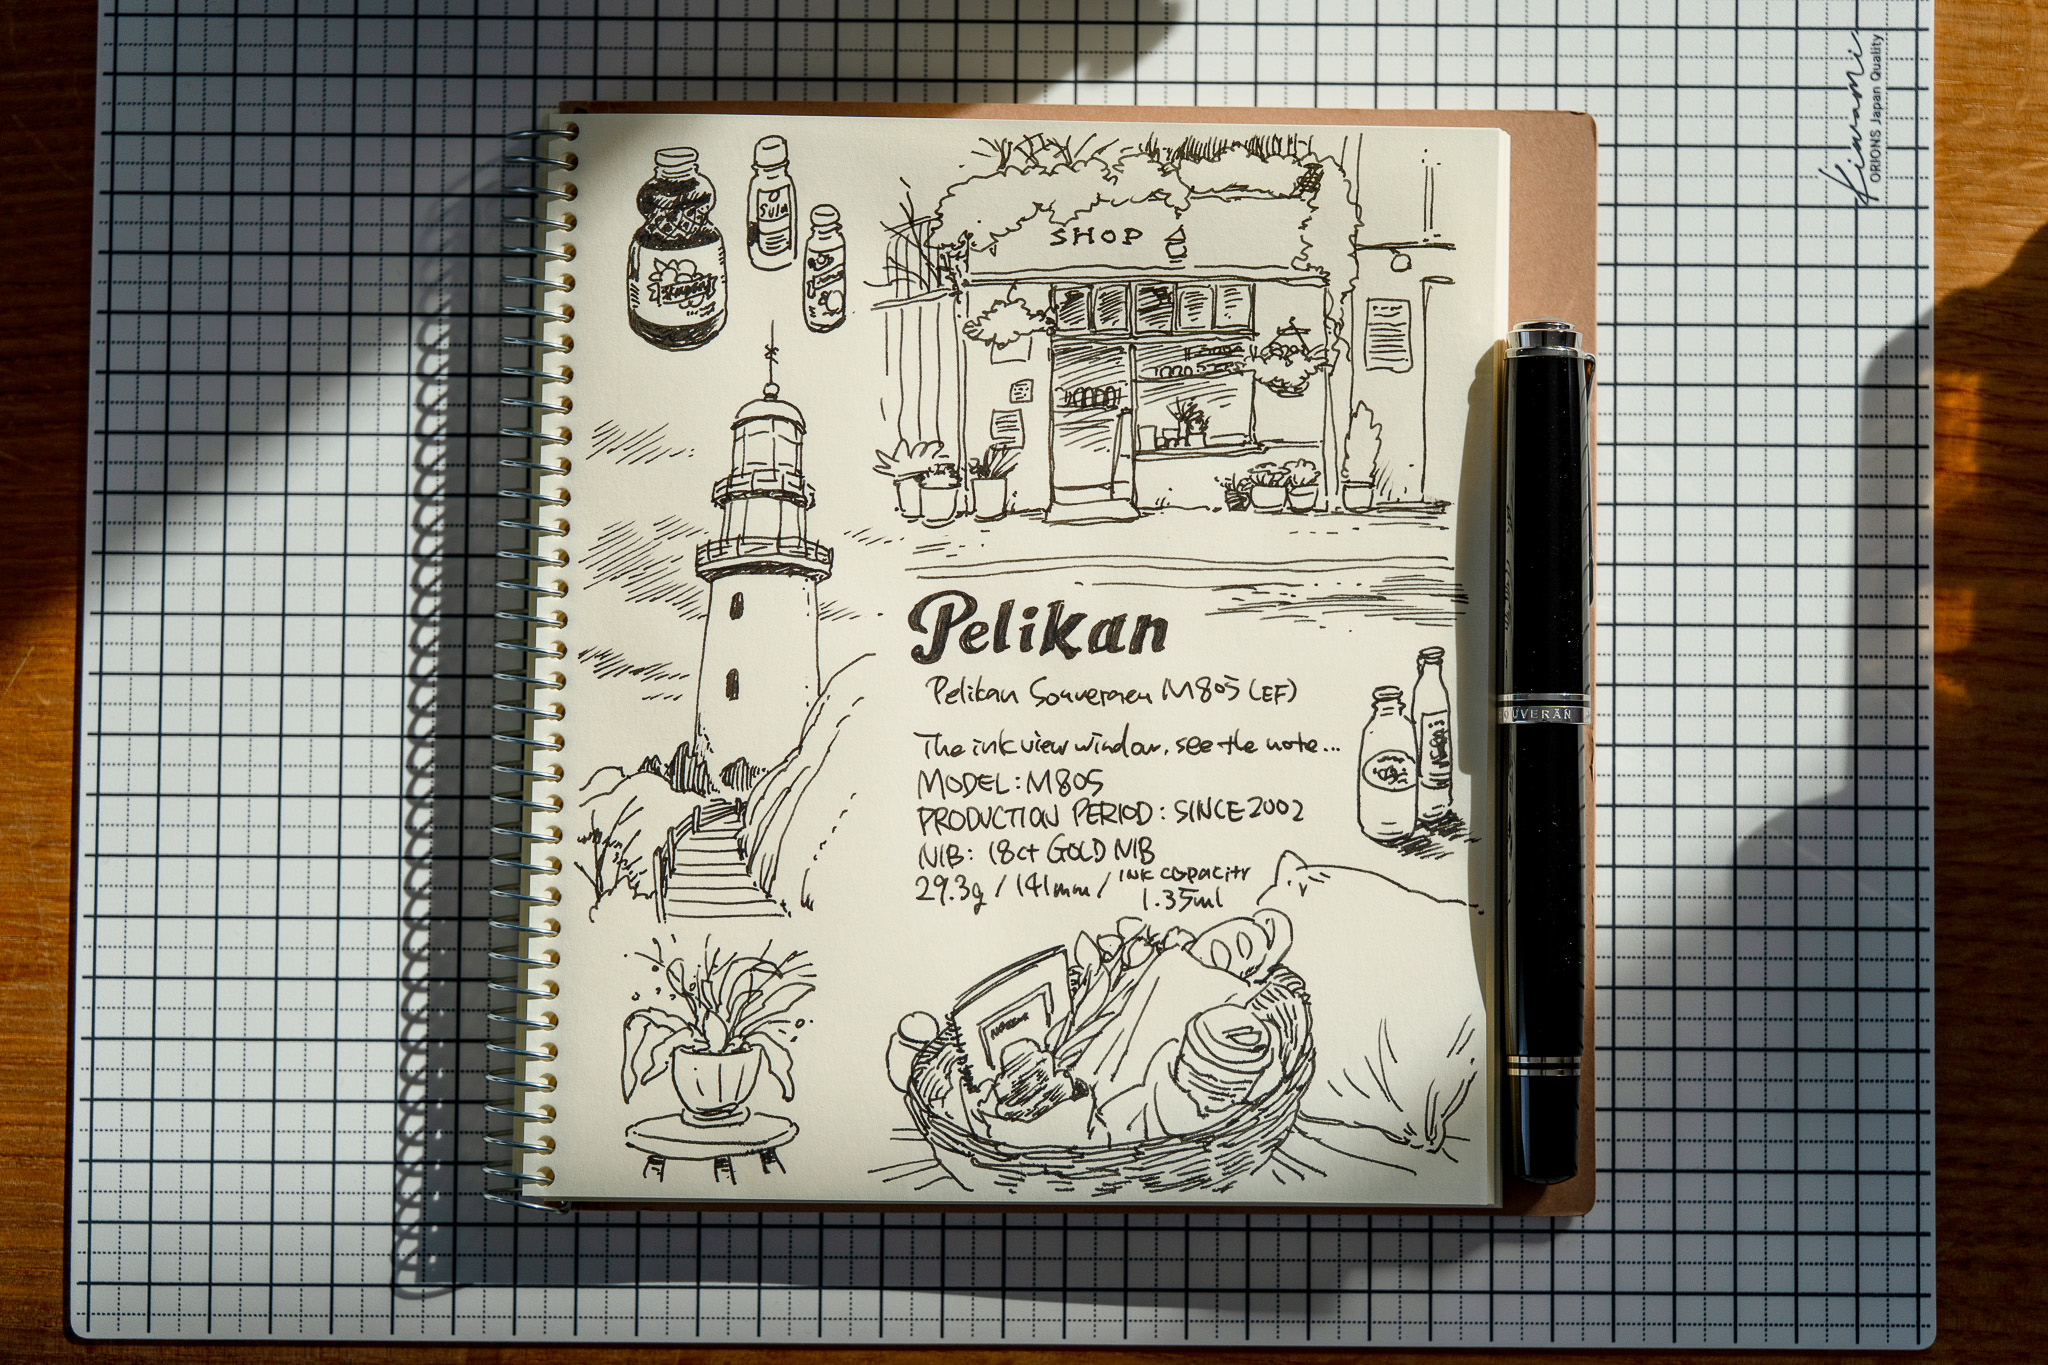 Kiwami
ORIONS Japan Quality
Sula
SHOP
Pelikan
Pelikan Souveraen M805 (EF)
The ink view window, see the note...
MODEL: M805
PRODUCTION PERIOD: SINCE 2002
NIB: 18ct GOLD NIB
29.3g / 141mm / INK CAPACITY
1.35ml
OUVERÄN